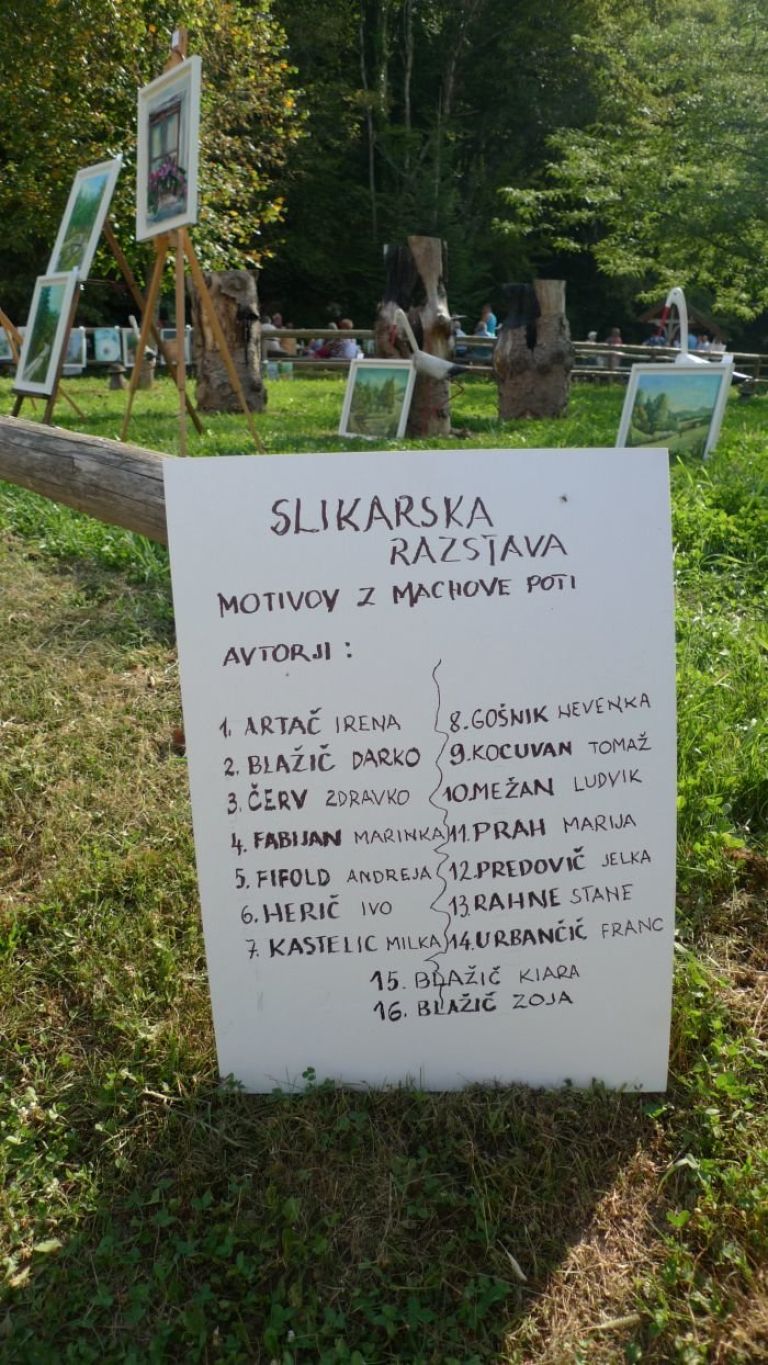 SLIKARSKA
RAZSTAVA
MOTIVOV Z MACHOVE POTI
AVTORJI :
1. ARTAČ IRENA
2. BLAŽIČ DARKO
3. ČERV ZDRAVKO
4. FABIJAN MARINKA
5. FIFOLD ANDREJA
6. HERIČ IVO
7. KASTELIC MILKA
8. GOŠNIK NEVENKA
9. KOCUVAN TOMAŽ
10. MEŽAN LUDVIK
11. PRAH MARIJA
12. PREDOVIČ JELKA
13. RAHNE STANE
14. URBANČIČ FRANC
15. BLAŽIČ KIARA
16. BLAŽIČ ZOJA